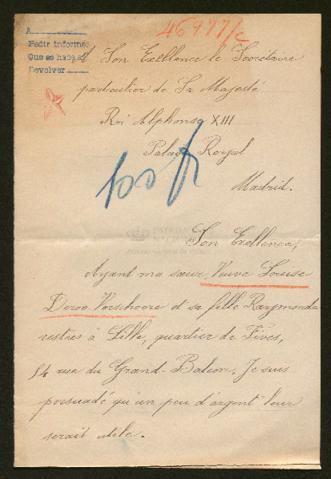 A
Pedir informe
Que se haga
Devolver
46977/c
Son Excellence le Secrétaire
particulier de Sa Majesté
Roi Alphonse XIII
Palais Royal
Madrid.
100 fr
Son Excellence,
Ayant ma sœur, Veuve Louise
et sa fille Raymonde
restées à Lille, quartier de Fives,
54 rue du Grand-Balcon, Je suis
persuadé qu'un peu d'argent leur
serait utile.